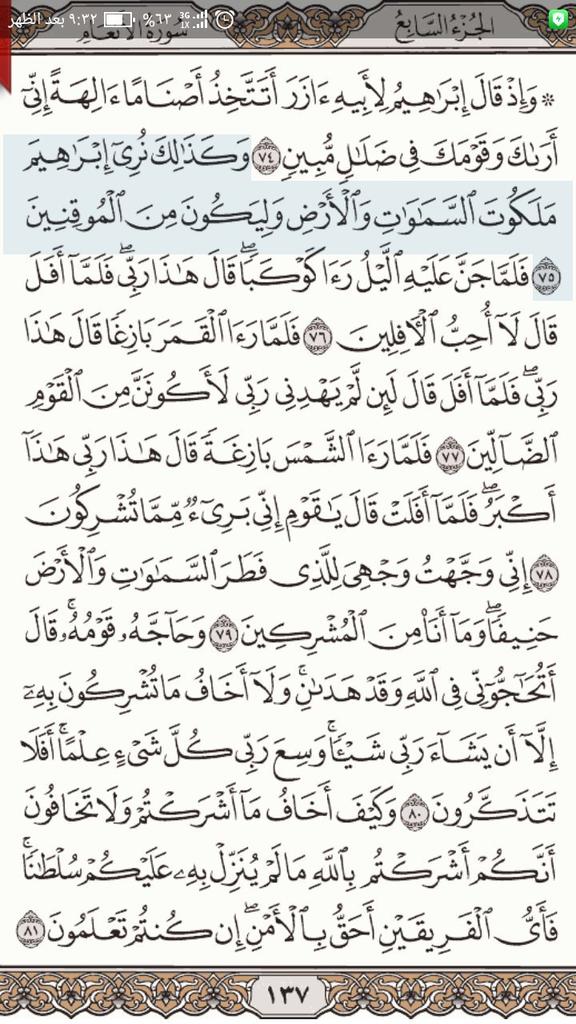 ٩:٣٢ بعد الظهر ٦٣% 3G 1X
الجزء السابع سورة الأنعام
۞ وَإِذْ قَالَ إِبْرَٰهِيمُ لِأَبِيهِ ءَازَرَ أَتَتَّخِذُ أَصْنَامًا ءَالِهَةً إِنِّىٓ
أَرَىٰكَ وَقَوْمَكَ فِى ضَلَٰلٍ مُّبِينٍ ٧٤ وَكَذَٰلِكَ نُرِىٓ إِبْرَٰهِيمَ
مَلَكُوتَ ٱلسَّمَٰوَٰتِ وَٱلْأَرْضِ وَلِيَكُونَ مِنَ ٱلْمُوقِنِينَ
٧٥ فَلَمَّا جَنَّ عَلَيْهِ ٱلَّيْلُ رَءَا كَوْكَبًاۖ قَالَ هَٰذَا رَبِّىۖ فَلَمَّآ أَفَلَ
قَالَ لَآ أُحِبُّ ٱلْءَافِلِينَ ٧٦ فَلَمَّا رَءَا ٱلْقَمَرَ بَازِغًا قَالَ هَٰذَا
رَبِّىۖ فَلَمَّآ أَفَلَ قَالَ لَئِن لَّمْ يَهْدِنِى رَبِّى لَأَكُونَنَّ مِنَ ٱلْقَوْمِ
ٱلضَّآلِّينَ ٧٧ فَلَمَّا رَءَا ٱلشَّمْسَ بَازِغَةً قَالَ هَٰذَا رَبِّى هَٰذَآ
أَكْبَرُۖ فَلَمَّآ أَفَلَتْ قَالَ يَٰقَوْمِ إِنِّى بَرِىٓءٌ مِّمَّا تُشْرِكُونَ
٧٨ إِنِّى وَجَّهْتُ وَجْهِىَ لِلَّذِى فَطَرَ ٱلسَّمَٰوَٰتِ وَٱلْأَرْضَ
حَنِيفًاۖ وَمَآ أَنَا۠ مِنَ ٱلْمُشْرِكِينَ ٧٩ وَحَآجَّهُۥ قَوْمُهُۥۚ قَالَ
أَتُحَٰٓجُّوٓنِّى فِى ٱللَّهِ وَقَدْ هَدَىٰنِۚ وَلَآ أَخَافُ مَا تُشْرِكُونَ بِهِۦٓ
إِلَّآ أَن يَشَآءَ رَبِّى شَيْـًٔاۚ وَسِعَ رَبِّى كُلَّ شَىْءٍ عِلْمًاۚ أَفَلَا
تَتَذَكَّرُونَ ٨٠ وَكَيْفَ أَخَافُ مَآ أَشْرَكْتُمْ وَلَا تَخَافُونَ
أَنَّكُمْ أَشْرَكْتُم بِٱللَّهِ مَا لَمْ يُنَزِّلْ بِهِۦ عَلَيْكُمْ سُلْطَٰنًاۚ
فَأَىُّ ٱلْفَرِيقَيْنِ أَحَقُّ بِٱلْأَمْنِۖ إِن كُنتُمْ تَعْلَمُونَ ٨١
١٣٧